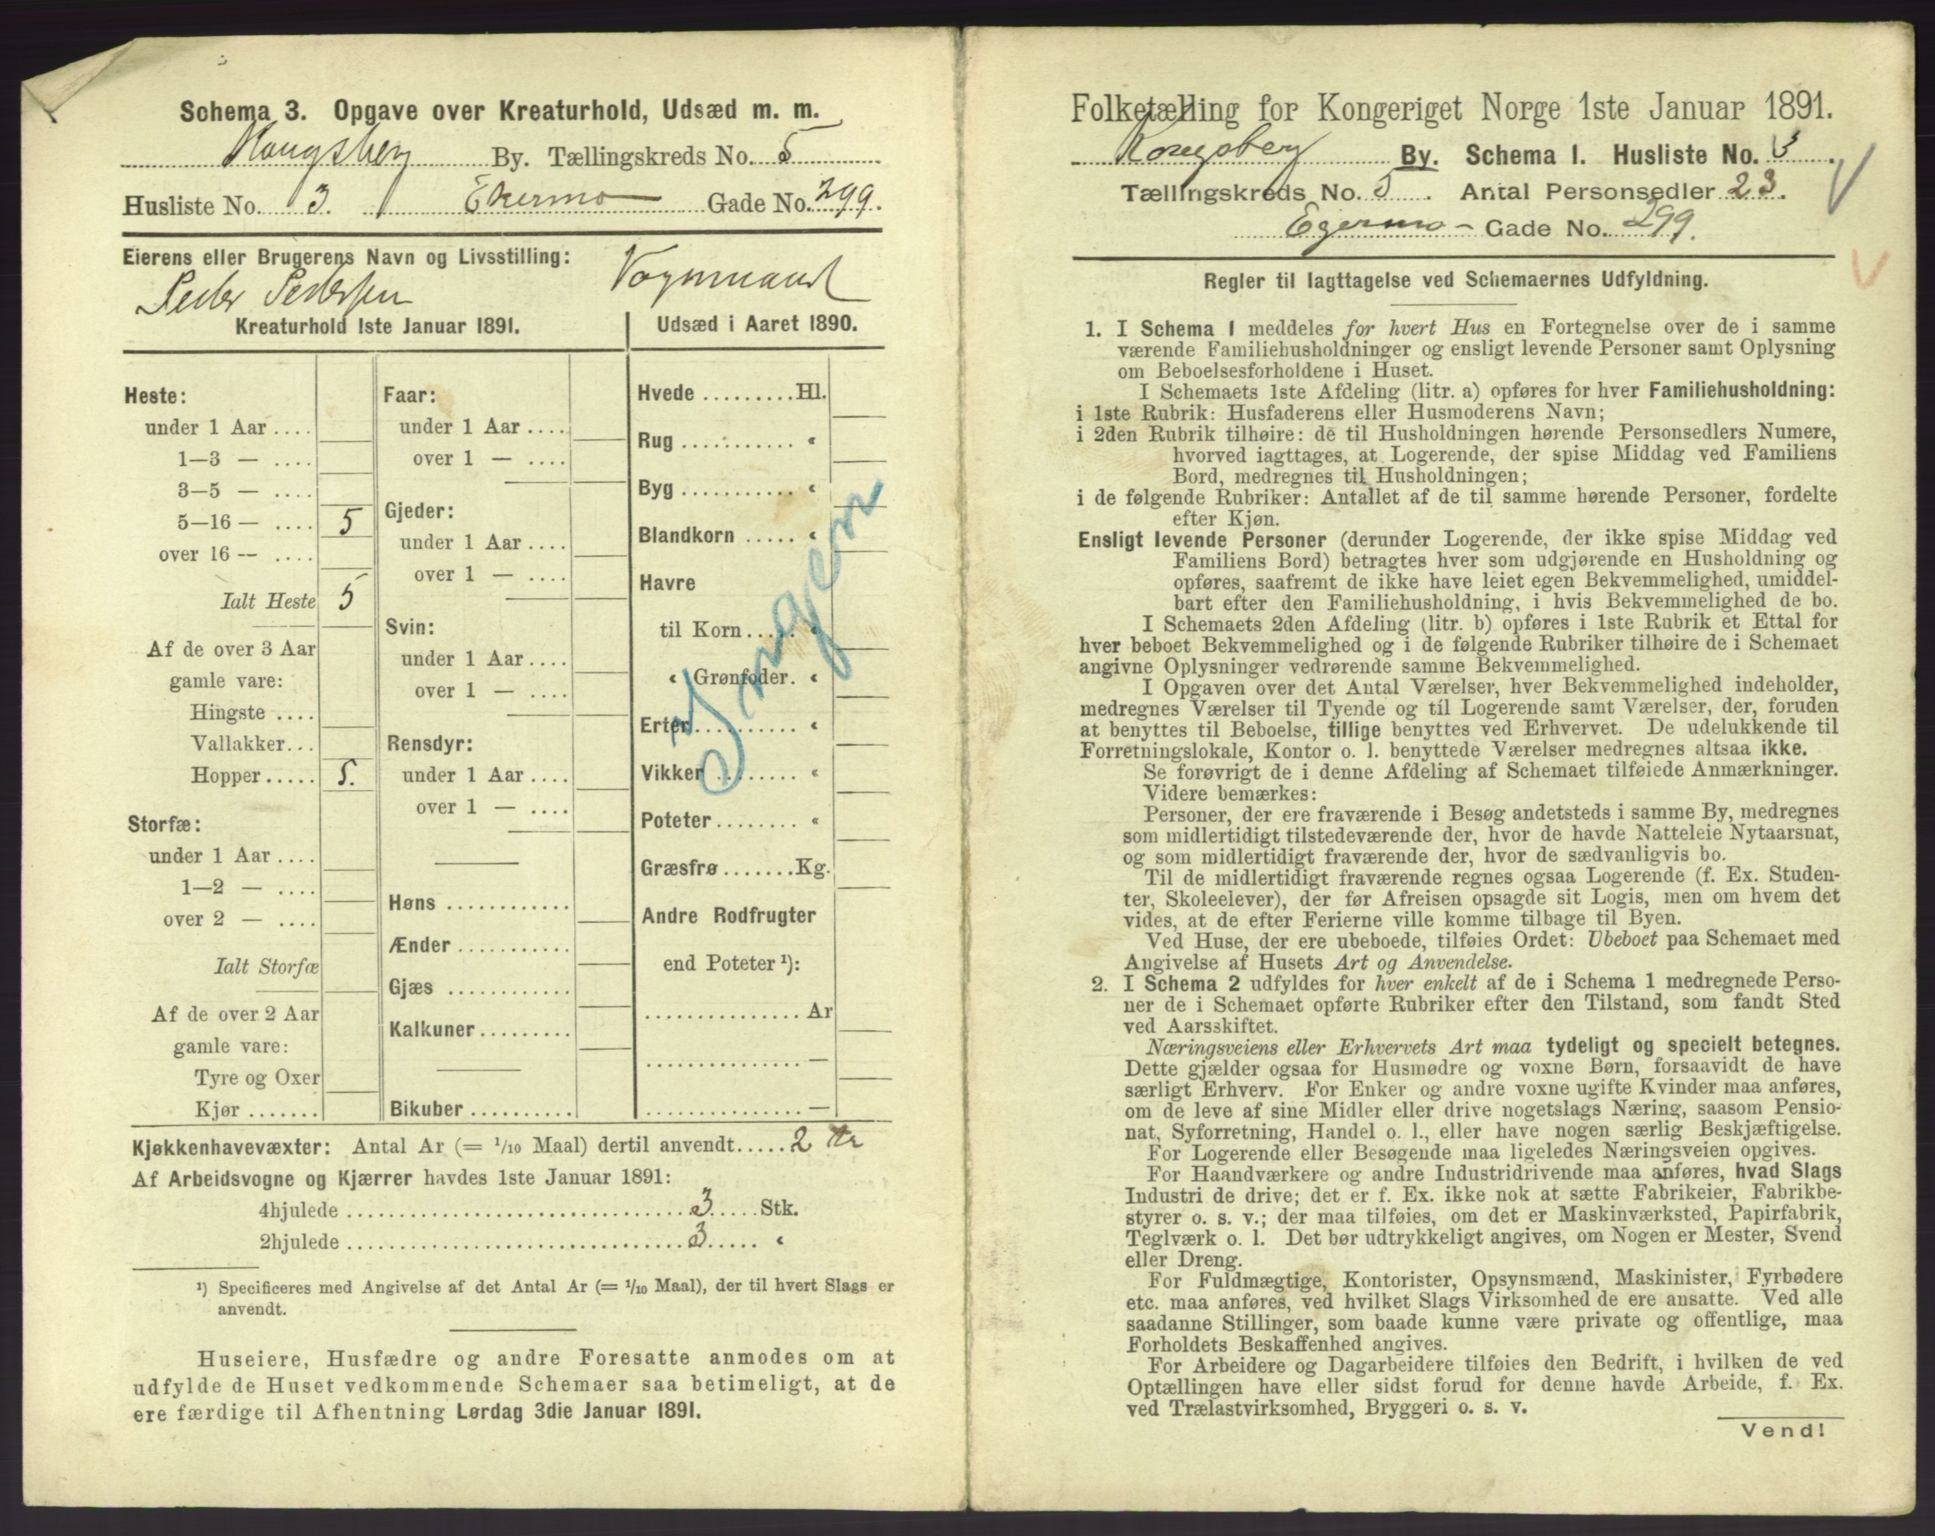 Schema 3. Opgave over Kreaturhold, Udsæd m. m.
Kongsberg By. Tællingskreds No. 5
Husliste No. 3. Ekermo Gade No. 299.
Eierens eller Brugerens Navn og Livsstilling:
Peder Pedersen Vognmand
Kreaturhold 1ste Januar 1891.
Heste:
under 1 Aar ....
1—3 — ....
3—5 — ....
5—16 — .... 5
over 16 — ....
Ialt Heste 5
Af de over 3 Aar
gamle vare:
Hingste ....
Vallakker...
Hopper..... 5.
Storfæ:
under 1 Aar ....
1—2 — ....
over 2 — ....
Ialt Storfæ
Af de over 2 Aar
gamle vare:
Tyre og Oxer
Kjør .......
Faar:
under 1 Aar ....
over 1 — ....
Gjeder:
under 1 Aar ....
over 1 — ....
Svin:
under 1 Aar ....
over 1 — ....
Rensdyr:
under 1 Aar ....
over 1 — ....
Høns ............
Ænder ...........
Gjæs ............
Kalkuner.........
Bikuber ..........
Udsæd i Aaret 1890.
Hvede .........Hl.
Rug ........... «
Byg ........... «
Blandkorn ..... «
Havre
til Korn ..... «
« Grønfoder. «
Erter.......... «
Vikker ........ «
Poteter........ «
Græsfrø .......Kg.
Andre Rodfrugter
end Poteter ¹):
............... Ar
............... —
............... —
Ingen
Kjøkkenhavevæxter: Antal Ar (= 1/10 Maal) dertil anvendt..... 2 Ar
Af Arbeidsvogne og Kjærrer havdes 1ste Januar 1891:
4hjulede ................ 3 ..... Stk.
2hjulede ................ 3 ..... «
¹) Specificeres med Angivelse af det Antal Ar (= 1/10 Maal), der til hvert Slags er
anvendt.
Huseiere, Husfædre og andre Foresatte anmodes om at
udfylde de Huset vedkommende Schemaer saa betimeligt, at de
ere færdige til Afhentning Lørdag 3die Januar 1891.
Folketælling for Kongeriget Norge 1ste Januar 1891.
Kongsberg By. Schema I. Husliste No. 3.
Tællingskreds No. 5. Antal Personsedler 23.
Egermo - Gade No. 299.
Regler til Iagttagelse ved Schemaernes Udfyldning.
1. I Schema 1 meddeles for hvert Hus en Fortegnelse over de i samme
værende Familiehusholdninger og ensligt levende Personer samt Oplysning
om Beboelsesforholdene i Huset.
I Schemaets 1ste Afdeling (litr. a) opføres for hver Familiehusholdning:
i 1ste Rubrik: Husfaderens eller Husmoderens Navn;
i 2den Rubrik tilhøire: de til Husholdningen hørende Personsedlers Numere,
hvorved iagttages, at Logerende, der spise Middag ved Familiens
Bord, medregnes til Husholdningen;
i de følgende Rubriker: Antallet af de til samme hørende Personer, fordelte
efter Kjøn.
Ensligt levende Personer (derunder Logerende, der ikke spise Middag ved
Familiens Bord) betragtes hver som udgjørende en Husholdning og
opføres, saafremt de ikke have leiet egen Bekvemmelighed, umiddel-
bart efter den Familiehusholdning, i hvis Bekvemmelighed de bo.
I Schemaets 2den Afdeling (litr. b) opføres i 1ste Rubrik et Ettal for
hver beboet Bekvemmelighed og i de følgende Rubriker tilhøire de i Schemaet
angivne Oplysninger vedrørende samme Bekvemmelighed.
I Opgaven over det Antal Værelser, hver Bekvemmelighed indeholder,
medregnes Værelser til Tyende og til Logerende samt Værelser, der, foruden
at benyttes til Beboelse, tillige benyttes ved Erhvervet. De udelukkende til
Forretningslokale, Kontor o. l. benyttede Værelser medregnes altsaa ikke.
Se forøvrigt de i denne Afdeling af Schemaet tilføiede Anmærkninger.
Videre bemærkes:
Personer, der ere fraværende i Besøg andetsteds i samme By, medregnes
som midlertidigt tilstedeværende der, hvor de havde Natteleie Nytaarsnat,
og som midlertidigt fraværende der, hvor de sædvanligvis bo.
Til de midlertidigt fraværende regnes ogsaa Logerende (f. Ex. Studen-
ter, Skoleelever), der før Afreisen opsagde sit Logis, men om hvem det
vides, at de efter Ferierne ville komme tilbage til Byen.
Ved Huse, der ere ubeboede, tilføies Ordet: Ubeboet paa Schemaet med
Angivelse af Husets Art og Anvendelse.
2. I Schema 2 udfyldes for hver enkelt af de i Schema 1 medregnede Perso-
ner de i Schemaet opførte Rubriker efter den Tilstand, som fandt Sted
ved Aarsskiftet.
Næringsveiens eller Erhvervets Art maa tydeligt og specielt betegnes.
Dette gjælder ogsaa for Husmødre og voxne Børn, forsaavidt de have
særligt Erhverv. For Enker og andre voxne ugifte Kvinder maa anføres,
om de leve af sine Midler eller drive nogetslags Næring, saasom Pensio-
nat, Syforretning, Handel o. l., eller have nogen særlig Beskjæftigelse.
For Logerende eller Besøgende maa ligeledes Næringsveien opgives.
For Haandværkere og andre Industridrivende maa anføres, hvad Slags
Industri de drive; det er f. Ex. ikke nok at sætte Fabrikeier, Fabrikbe-
styrer o. s. v.; der maa tilføies, om det er Maskinværksted, Papirfabrik,
Teglværk o. l. Det bør udtrykkeligt angives, om Nogen er Mester, Svend
eller Dreng.
For Fuldmægtige, Kontorister, Opsynsmænd, Maskinister, Fyrbødere
etc. maa anføres, ved hvilket Slags Virksomhed de ere ansatte. Ved alle
saadanne Stillinger, som baade kunne være private og offentlige, maa
Forholdets Beskaffenhed angives.
For Arbeidere og Dagarbeidere tilføies den Bedrift, i hvilken de ved
Optællingen have eller sidst forud for denne havde Arbeide, f. Ex.
ved Trælastvirksomhed, Bryggeri o. s. v.
Vend!